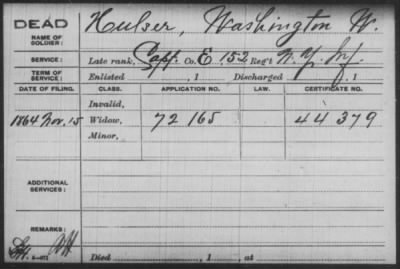 DEAD
NAME OF SOLDIER: Hulser, Washington W.
SERVICE: Late rank, Capt. Co. E 152 Reg't N.Y. Inf.
TERM OF SERVICE: Enlisted , 1 Discharged , 1
DATE OF FILING. CLASS. APPLICATION NO. LAW. CERTIFICATE NO.
Invalid,
1864 Nov. 15 Widow, 72 165 44 379
Minor,
ADDITIONAL SERVICES:
REMARKS:
Died , 1 , at